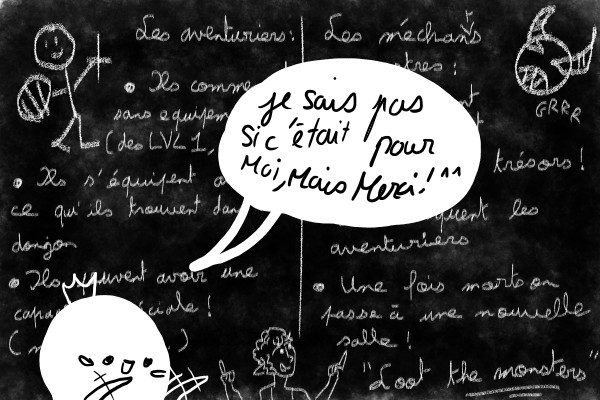 Les aventuriers:
• Ils comme
sans equipem
(des LVL 1,
• Ils s'équipent a
ce qu'ils trouvent dan
donjon
• Ils peuvent avoir une
capa éciale!
( )
Les méchants
tres:
GRRR
trésors!
quent les
aventuriers
• Une fois morts on
passe à une nouvelle
salle!
"Loot the monsters"
je sais pas
si c'était pour
Moi, Mais Merci! ^^